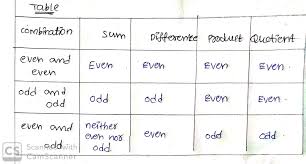 Table
combination Sum Difference Product Quotient
even and even Even Even Even Even.
odd and odd odd odd Even Even.
even and odd. neither even nor odd. even odd odd.
CS Scanned with CamScanner